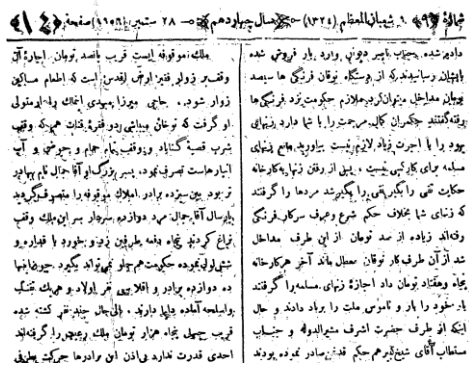 شماره (۹) ۱ شعبان المعظم (۱۳۲۴) سال چهاردهم ۲۸ ستمبر (۱۹۰۶) صفحه
داده شده وارد بار فروش شده
بایشان رسانیدند که از دستگاه نوقان فرنگی ها سیصد
تومان مداخل میتوان کرد ملازم حکومت نزد فرنگی‌ها
رفته گفتند حکمران کمال مرحمت را با شما دارد زنهای
خود را با اجرت زیاد لازم نیست بیاورید مانع زنهای
مسلمه برای کار کسی نیست پس از رفتن زنها بکارخانه
حکایت تقی را بگیر نقی را بگیر شد مردها را گرفتند
که زنهای شما بخلاف حکم شرع و عرف سرکار فرنگی
رفته‌اند زیاده از صد تومان از این طرف مداخل
شد از آن طرف کار نوقان معطل ماند آخر هم کارخانه
پنجاه و هفتاد تومان داد اجازهٔ زنهای مسلمه را گرفتند
بار خود را بار و ناموس ملت را برباد دادند و حال
اینکه از طرف حضرت اشرف مشیرالدوله و جناب
مستطاب آقای شیخ حکم صادر نموده بودند
ملک موقوفه ایست قریب پانصد تومان اجارهٔ آن
وقف بر زوار فقیر ارض اقدس است که اطعام مساکین
زوار شود حاجی میرزا مهدی
او گرفت که دو فقره قنات هم که وقف
شرب قصبهٔ گناباد و وقف تمام حمام و حوض و آب
انبارهاست تصرف نمود پسر بزرگ او آقا جمال نام
تر بود بین سیزده برادر املاک موقوفه را متصرف گردید
پارسال آقا جمال مرد دوازده سر این ملک وقف
نزاع کردند پنجاه دفعه طرفین زد و خورد با قداره و
شش لوله نموده حکومت هم جلو نمی‌تواند بگیرد
ده دوازده برادر و اقلا سی نفر اولاد و همه تفنگ
و اسلحه آماده دارند تا بحال چند نفر کشته شده
قریب چهل پنجاه هزار تومان ملک رعیتی را گرفته‌اند
احدی قدرت ندارد بی‌اذن این برادرها حرکت